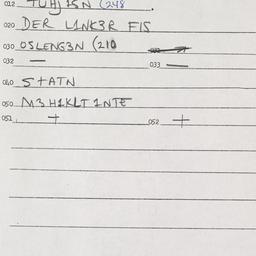 012 TUHJ 15N (248
020 DER L1NK3R F1S
030 OSLENG3N (210
032 — 033 —
040 S+ATN
050 M3H1KLT1NTE
051 + 052 +